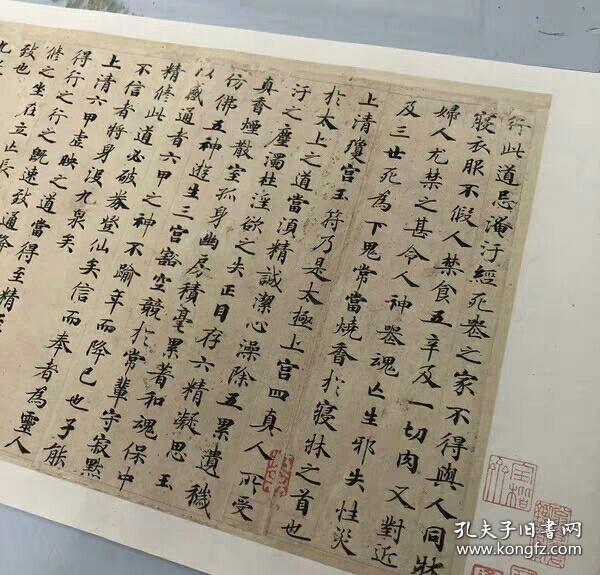 行此道忌淹汙經死喪之家不得與人同牀
寢衣服不假人禁食五辛及一切肉又對近
婦人尤禁之甚令人神喪魂亡生邪失性災
及三世死為下鬼常當燒香於寢牀之首也
上清瓊宮玉符乃是太極上宮四真人所受
於太上之道當須精誠潔心澡除五累遺穢
汙之塵濁杜淫欲之失正目存六精凝思玉
真香煙散室孤身幽房積毫累著和魂保中
仿佛五神遊生三宮豁空競於常輩守寂默
以感通者六甲之神不踰年而降己也子能
精修此道必破券登仙矣信而奉者為靈人
不信者將身沒九泉矣
上清六甲虛映之道當得至精至
得行之行之既速致通
修之坐在立亡長
致也
孔夫子旧书网
www.kongfz.com